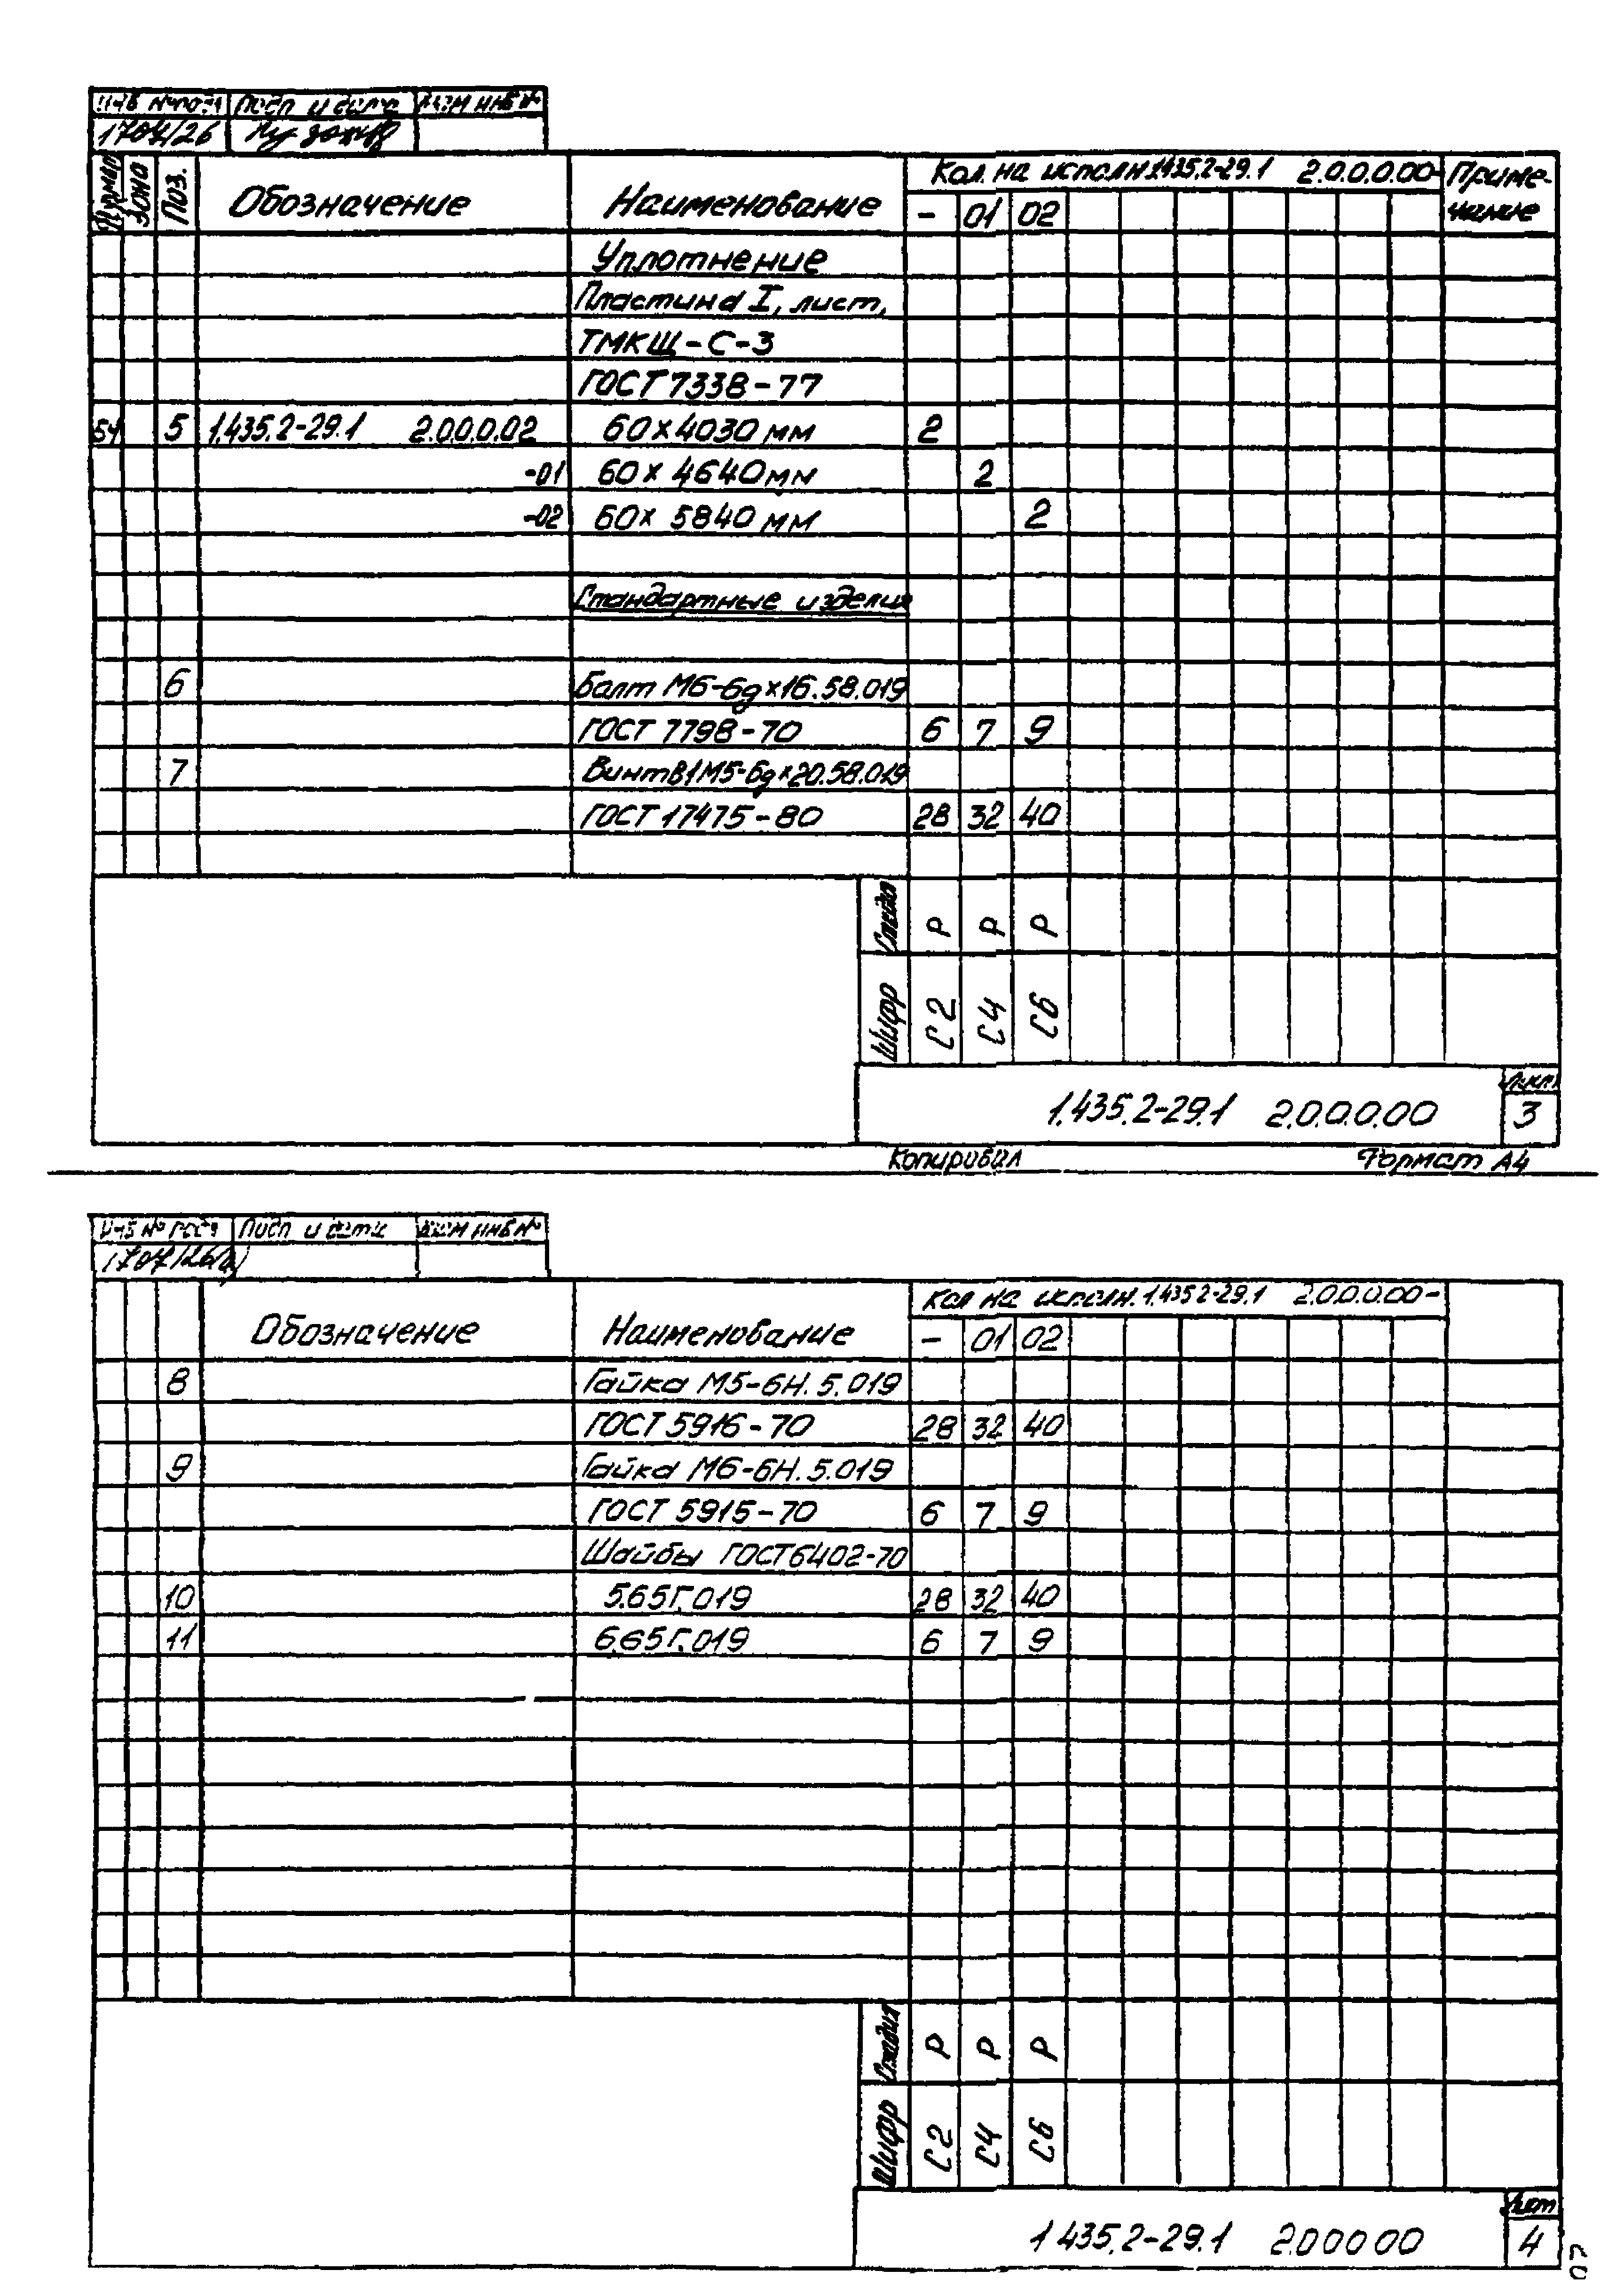 Инв № подл Подп и дата Взам инв №
1704/26
Формат Зона Поз. Обозначение Наименование Кол. на исполн 1.435.2-29.1 2.0.0.0.00- Приме-
чание
- 01 02
Уплотнение
Пластина I, лист,
ТМКЩ-С-3
ГОСТ 7338-77
БЧ 5 1.435.2-29.1 2.0.0.0.02 60×4030 мм 2
-01 60×4640 мм 2
-02 60×5840 мм 2
Стандартные изделия
6 Болт М6-6g×16.58.019
ГОСТ 7798-70 6 7 9
7 Винт В1М5-6g×20.58.019
ГОСТ 17475-80 28 32 40
Стадия Р Р Р
Шифр С2 С4 С6
1.435.2-29.1 2.0.0.0.00 Лист
3
Копировал Формат А4
Инв № подл Подп и дата Взам инв №
Обозначение Наименование Кол на исполн. 1.435.2-29.1 2.0.0.0.00-
- 01 02
8 Гайка М5-6Н.5.019
ГОСТ 5916-70 28 32 40
9 Гайка М6-6Н.5.019
ГОСТ 5915-70 6 7 9
Шайбы ГОСТ 6402-70
10 5.65Г.019 28 32 40
11 6.65Г.019 6 7 9
Стадия Р Р Р
Шифр С2 С4 С6
1.435.2-29.1 2.0.0.0.00 Лист
4